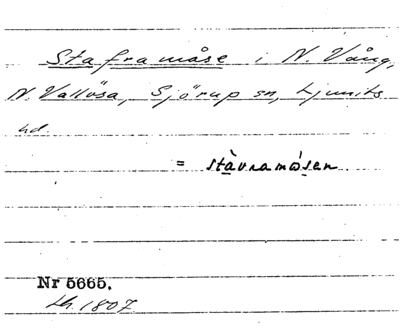 Staframåse i N. Vång,
N. Vallösa, Sjörup sn, Ljunits
hd.
= stàvramósen
Nr 5665.
Lh. 1807